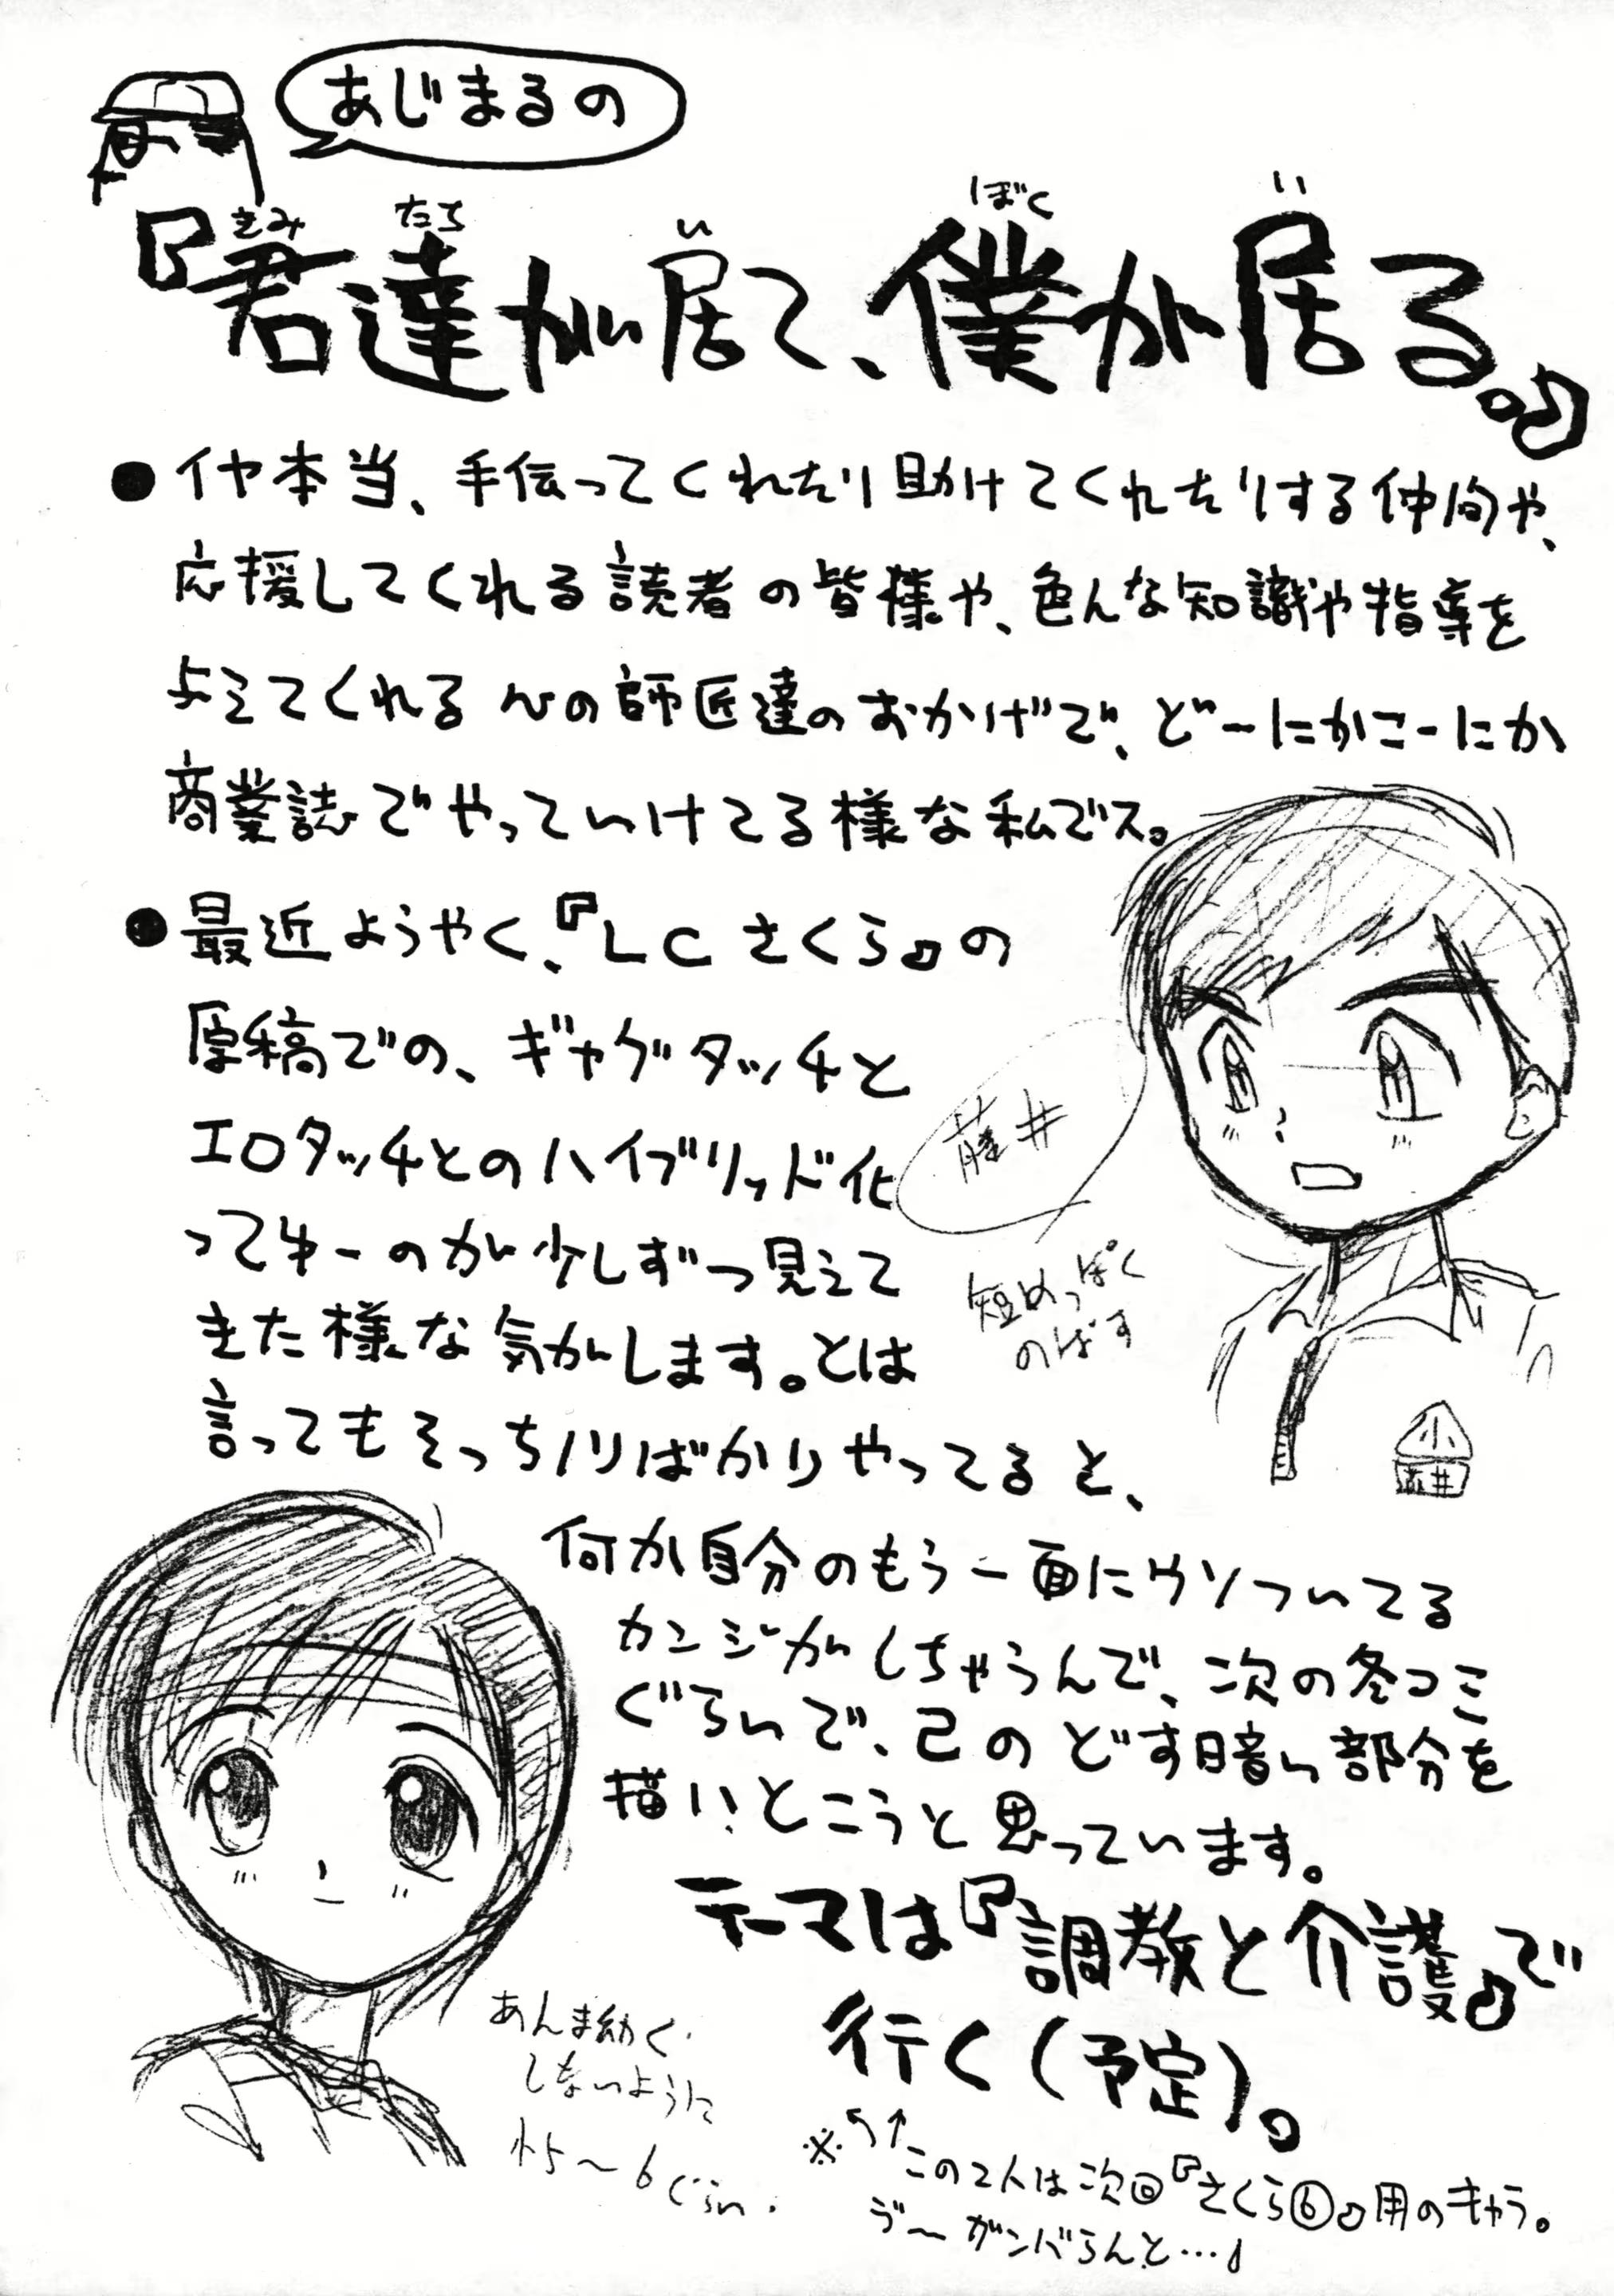 あじまるの
『君達が居て、僕が居る。』
きみ たち い ぼく い
●イヤ本当、手伝ってくれたり助けてくれたりする仲間や、
応援してくれる読者の皆様や、色んな知識や指導を
与えてくれる心の師匠達のおかげで、どーにかこーにか
商業誌でやっていけてる様な私でス。
●最近ようやく、『LCさくら』の
原稿での、ギャグタッチと
エロタッチとのハイブリッド化
ってゆーのが少しずつ見えて
きた様な気がします。とは
言ってもそっちノリばかりやってると、
何か自分のもう一面にウソついてる
カンジがしちゃうんで、次の冬コミ
ぐらいで、己のどす暗い部分を
描いとこうと思っています。
テーマは『調教と介護』で
行く(予定)。
※↰↑この2人は次回『さくら⑥』用のキャラ。
う〜ガンバらんと…♪
藤井
短めっぽく
のばす
小
藤井
あんま幼く
しないように
15〜6ぐらい.